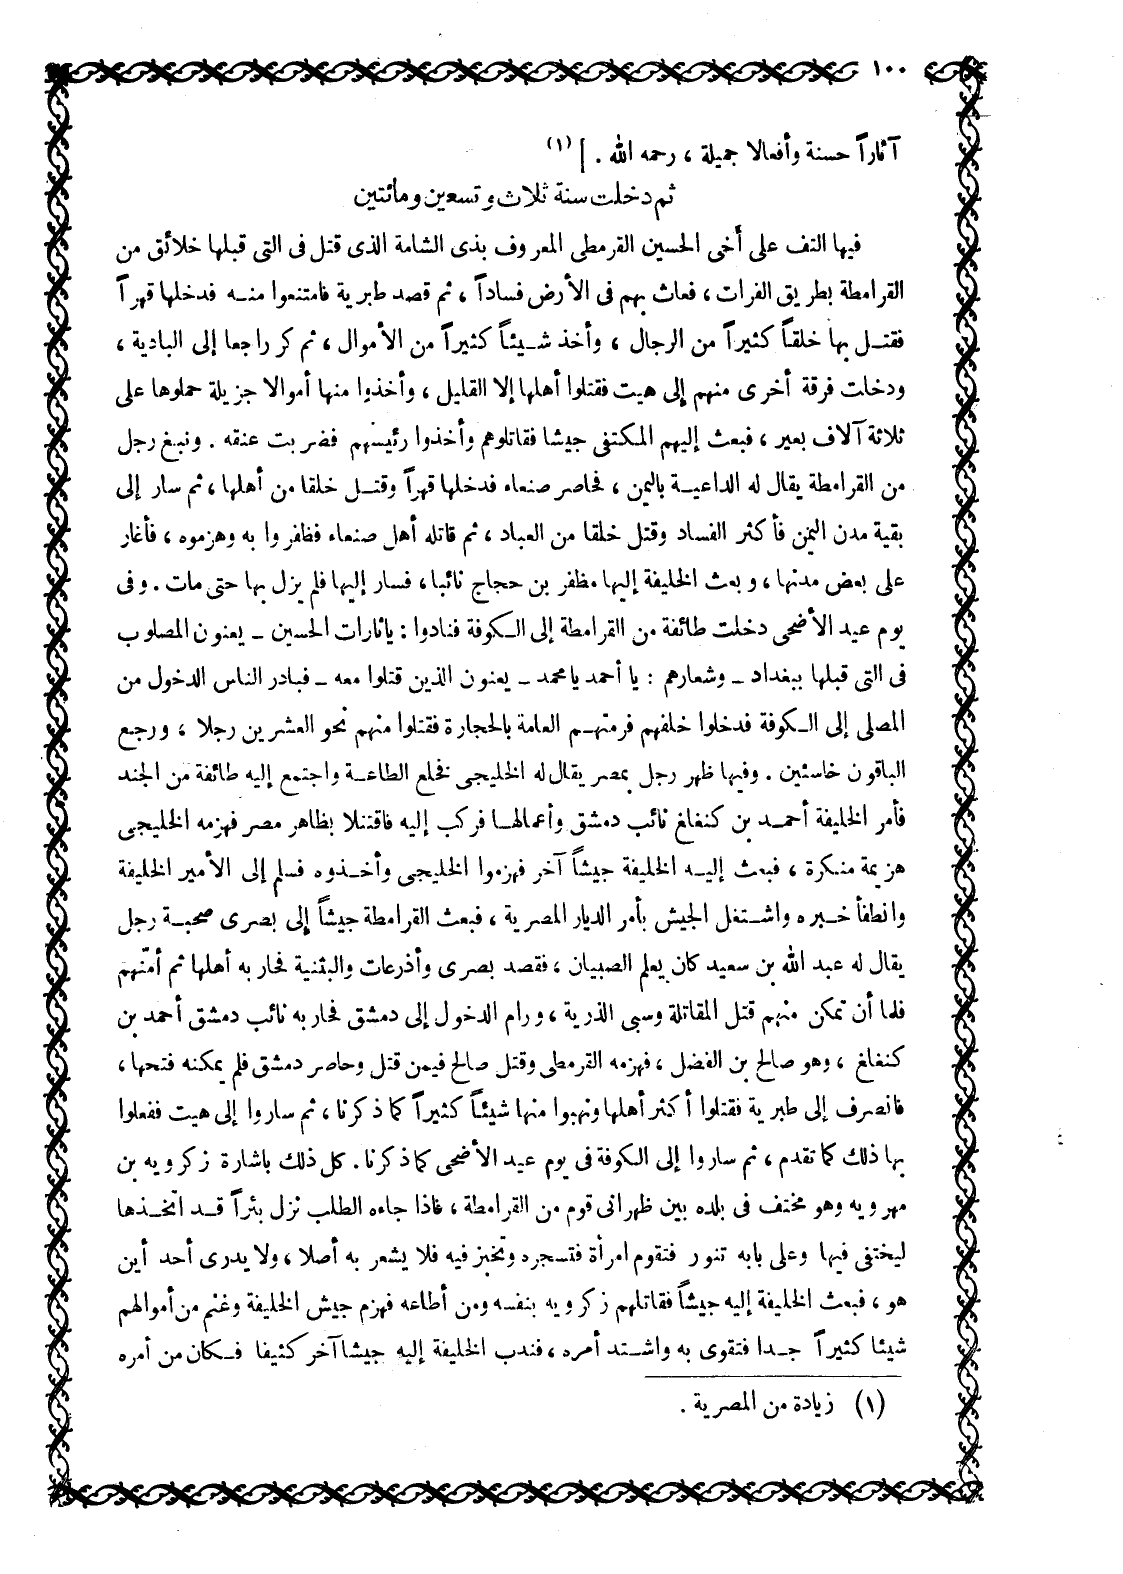 ١٠٠
آثاراً حسنة وأفعالا جميلة ، رحمه الله . ] (١)
ثم دخلت سنة ثلاث وتسعين ومائتين
فيها التف على أخى الحسين القرمطى المعروف بذى الشامة الذى قتل فى التى قبلها خلائق من
القرامطة بطريق الفرات ، فعاث بهم فى الأرض فساداً ، ثم قصد طبرية فامتنعوا منه فدخلها قهراً
فقتل بها خلقاً كثيراً من الرجال ، وأخذ شيئاً كثيراً من الأموال ، ثم كر راجعا إلى البادية ،
ودخلت فرقة أخرى منهم إلى هيت فقتلوا أهلها إلا القليل ، وأخذوا منها أموالا جزيلة حملوها على
ثلاثة آلاف بعير ، فبعث إليهم المكتفى جيشا فقاتلوهم وأخذوا رئيسهم فضربت عنقه . ونبغ رجل
من القرامطة يقال له الداعية باليمن ، فحاصر صنعاء فدخلها قهراً وقتل خلقا من أهلها ، ثم سار إلى
بقية مدن اليمن فأكثر الفساد وقتل خلقا من العباد ، ثم قاتله أهل صنعاء فظفروا به وهزموه ، فأغار
على بعض مدنها ، وبعث الخليفة إليها مظفر بن حجاج نائبا ، فسار إليها فلم يزل بها حتى مات . وفى
يوم عيد الأضحى دخلت طائفة من القرامطة إلى الكوفة فنادوا : يا ثارات الحسين ــ يعنون المصلوب
فى التى قبلها ببغداد ــ وشعارهم : يا أحمد يا محمد ــ يعنون الذين قتلوا معه ــ فبادر الناس الدخول من
المصلى إلى الكوفة فدخلوا خلفهم فرمتهم العامة بالحجارة فقتلوا منهم نحو العشرين رجلا ، ورجع
الباقون خاسئين . وفيها ظهر رجل بمصر يقال له الخليجى فخلع الطاعة واجتمع إليه طائفة من الجند
فأمر الخليفة أحمد بن كنغلغ نائب دمشق وأعمالها فركب إليه فاقتتلا بظاهر مصر فهزمه الخليجى
هزيمة منكرة ، فبعث إليه الخليفة جيشاً آخر فهزموا الخليجى وأخذوه فسلم إلى الأمير الخليفة
وانطفأ خبره واشتغل الجيش بأمر الديار المصرية ، فبعث القرامطة جيشاً إلى بصرى صحبة رجل
يقال له عبد الله بن سعيد كان يعلم الصبيان ، فقصد بصرى وأذرعات والبثنية فحاربه أهلها ثم أمّنهم
فلما أن تمكن منهم قتل المقاتلة وسبى الذرية ، ورام الدخول إلى دمشق فحاربه نائب دمشق أحمد بن
كنغلغ ، وهو صالح بن الفضل ، فهزمه القرمطى وقتل صالح فيمن قتل وحاصر دمشق فلم يمكنه فتحها ،
فانصرف إلى طبرية فقتلوا أكثر أهلها ونهبوا منها شيئاً كثيراً كما ذكرنا ، ثم ساروا إلى هيت ففعلوا
بها ذلك كما تقدم ، ثم ساروا إلى الكوفة فى يوم عيد الأضحى كما ذكرنا . كل ذلك باشارة زكرويه بن
مهرويه وهو مختف فى بلده بين ظهرانى قوم من القرامطة ، فاذا جاءه الطلب نزل بئراً قد اتخذها
ليختفى فيها وعلى بابه تنور فتقوم امرأة فتسجره وتخبز فيه فلا يشعر به أصلا ، ولا يدرى أحد أين
هو ، فبعث الخليفة إليه جيشاً فقاتلهم زكرويه بنفسه ومن أطاعه فهزم جيش الخليفة وغنم من أموالهم
شيئا كثيراً جدا فتقوى به واشتد أمره ، فندب الخليفة إليه جيشا آخر كثيفا فكان من أمره
(١) زيادة من المصرية .